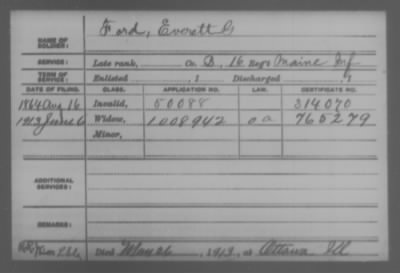 NAME OF SOLDIER: Ford, Everett G
SERVICE: Late rank, Co. D, 16 Reg't Maine Inf
TERM OF SERVICE: Enlisted , 1 Discharged , 1
DATE OF FILING. CLASS. APPLICATION NO. LAW. CERTIFICATE NO.
1864 Aug 16 Invalid, 50088 314070
1913 June 6 Widow, 1008942 O A 765279
Minor,
ADDITIONAL SERVICES:
REMARKS:
Died May 26, 1913, at Ottawa Ill